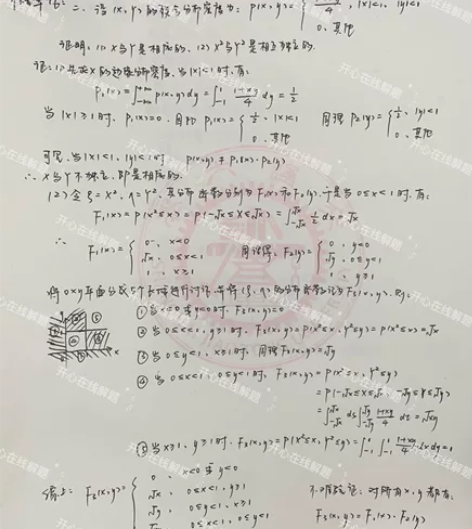 二、设(X,Y)的联合分布密度为: p(x,y)={ 4 , |x|<1, |y|<1
0, 其他
证明: (1) X与Y是相依的, (2) X²与Y²是相互独立的.
证: (1) 先求X的边缘分布密度, 当|x|<1时, 有:
P₁(x)=∫₋∞⁺∞ p(x,y)dy=∫₋₁¹ (1+xy)/4 dy=1/2
当|x|≥1时, P₁(x)=0. 因此 P₁(x)={ 1/2, |x|<1 同理 P₂(y)={ 1/2, |y|<1
0, 其他 0, 其他
可见, 当|x|<1, |y|<1时 p(x,y)≠P₁(x)·P₂(y)
∴ X与Y不独立, 即是相依的.
(2) 令ξ=X², η=Y², 其分布函数分别为F₁(x)和F₂(y), 于是当0≤x<1时, 有:
F₁(x)=P(X²≤x)=P(-√x≤X≤√x)=∫₋√x^√x 1/2 dx=√x
∴ F₁(x)={ 0, x<0 同理得: F₂(y)={ 0, y<0
√x, 0≤x<1 √y, 0≤y<1
1, x≥1 1, y≥1
将oxy平面分成5个区域进行讨论, (ξ,η)的分布函数记为F₃(x,y), 则:
① 当x<0或y<0时, F₃(x,y)=0
② 当0≤x<1, y≥1时, F₃(x,y)=P(X²≤x, Y²≤y)=P(X²≤x)=√x
③ 当0≤y<1, x≥1时, 同理F₃(x,y)=√y
④ 当0≤x<1, 0≤y<1时, F₃(x,y)=P(X²≤x, Y²≤y)
=P(-√x≤X≤√x, -√y≤Y≤√y)
=∫₋√x^√x ds∫₋√y^√y (1+xy)/4 dt=√xy
⑤ 当x≥1, y≥1时, F₃(x,y)=P(X²≤x, Y²≤y)=∫₋₁¹∫₋₁¹ (1+xy)/4 dxdy=1
综上: F₃(x,y)={ 0, x<0或y<0
√x, 0≤x<1, y≥1 不难验证: 对所有x,y都有:
√y, 0≤y<1, x≥1 F₃(x,y)=F₁(x)·F₂(y)
0≤x<1, 0≤y<1
开心在线解题